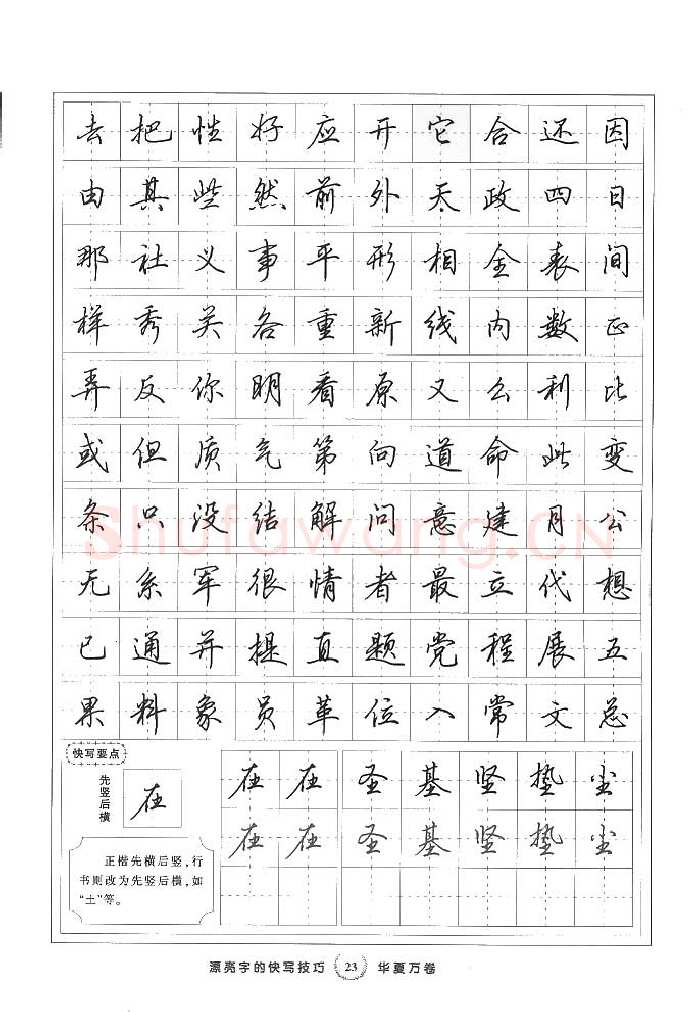 去把性好应开它合还因
由其些然前外天政四日
那社义事平形相全表间
样关各重新线内数正
反你明看原又么利比
或但质气第向道命此变
条只没结解问意建月公
无系军很情者最立代想
已通并提直题党程展五
果料象员革位入常文总
快写要点
先竖后横
在
在在圣基坚垫尘
在在圣基坚垫尘
正楷先横后竖,行
书则改为先竖后横,如
“土”等。
Shufawang.CN
漂亮字的快写技巧 23 华夏万卷